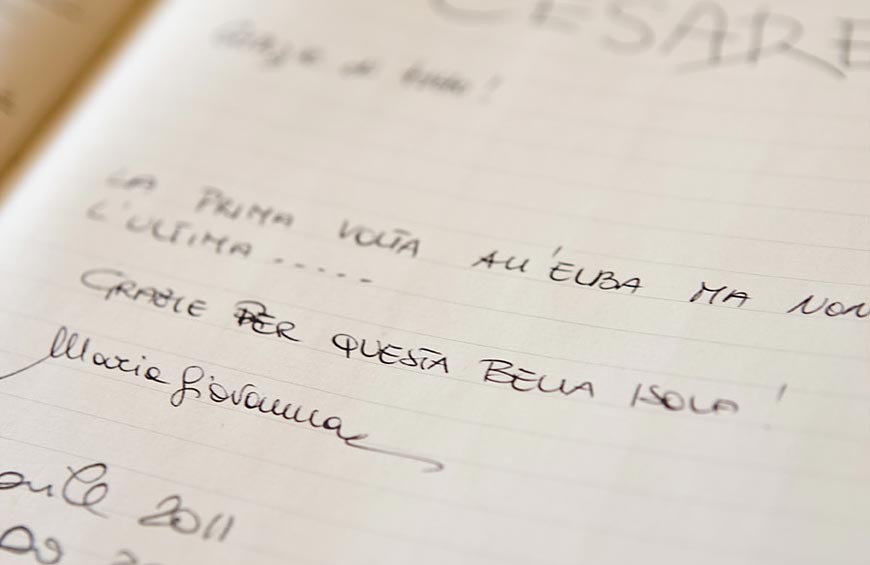 CESARE
LA PRIMA VOLTA ALL'ELBA MA NON
L'ULTIMA .....
GRAZIE PER QUESTA BELLA ISOLA!
Maria Giovanna
2011